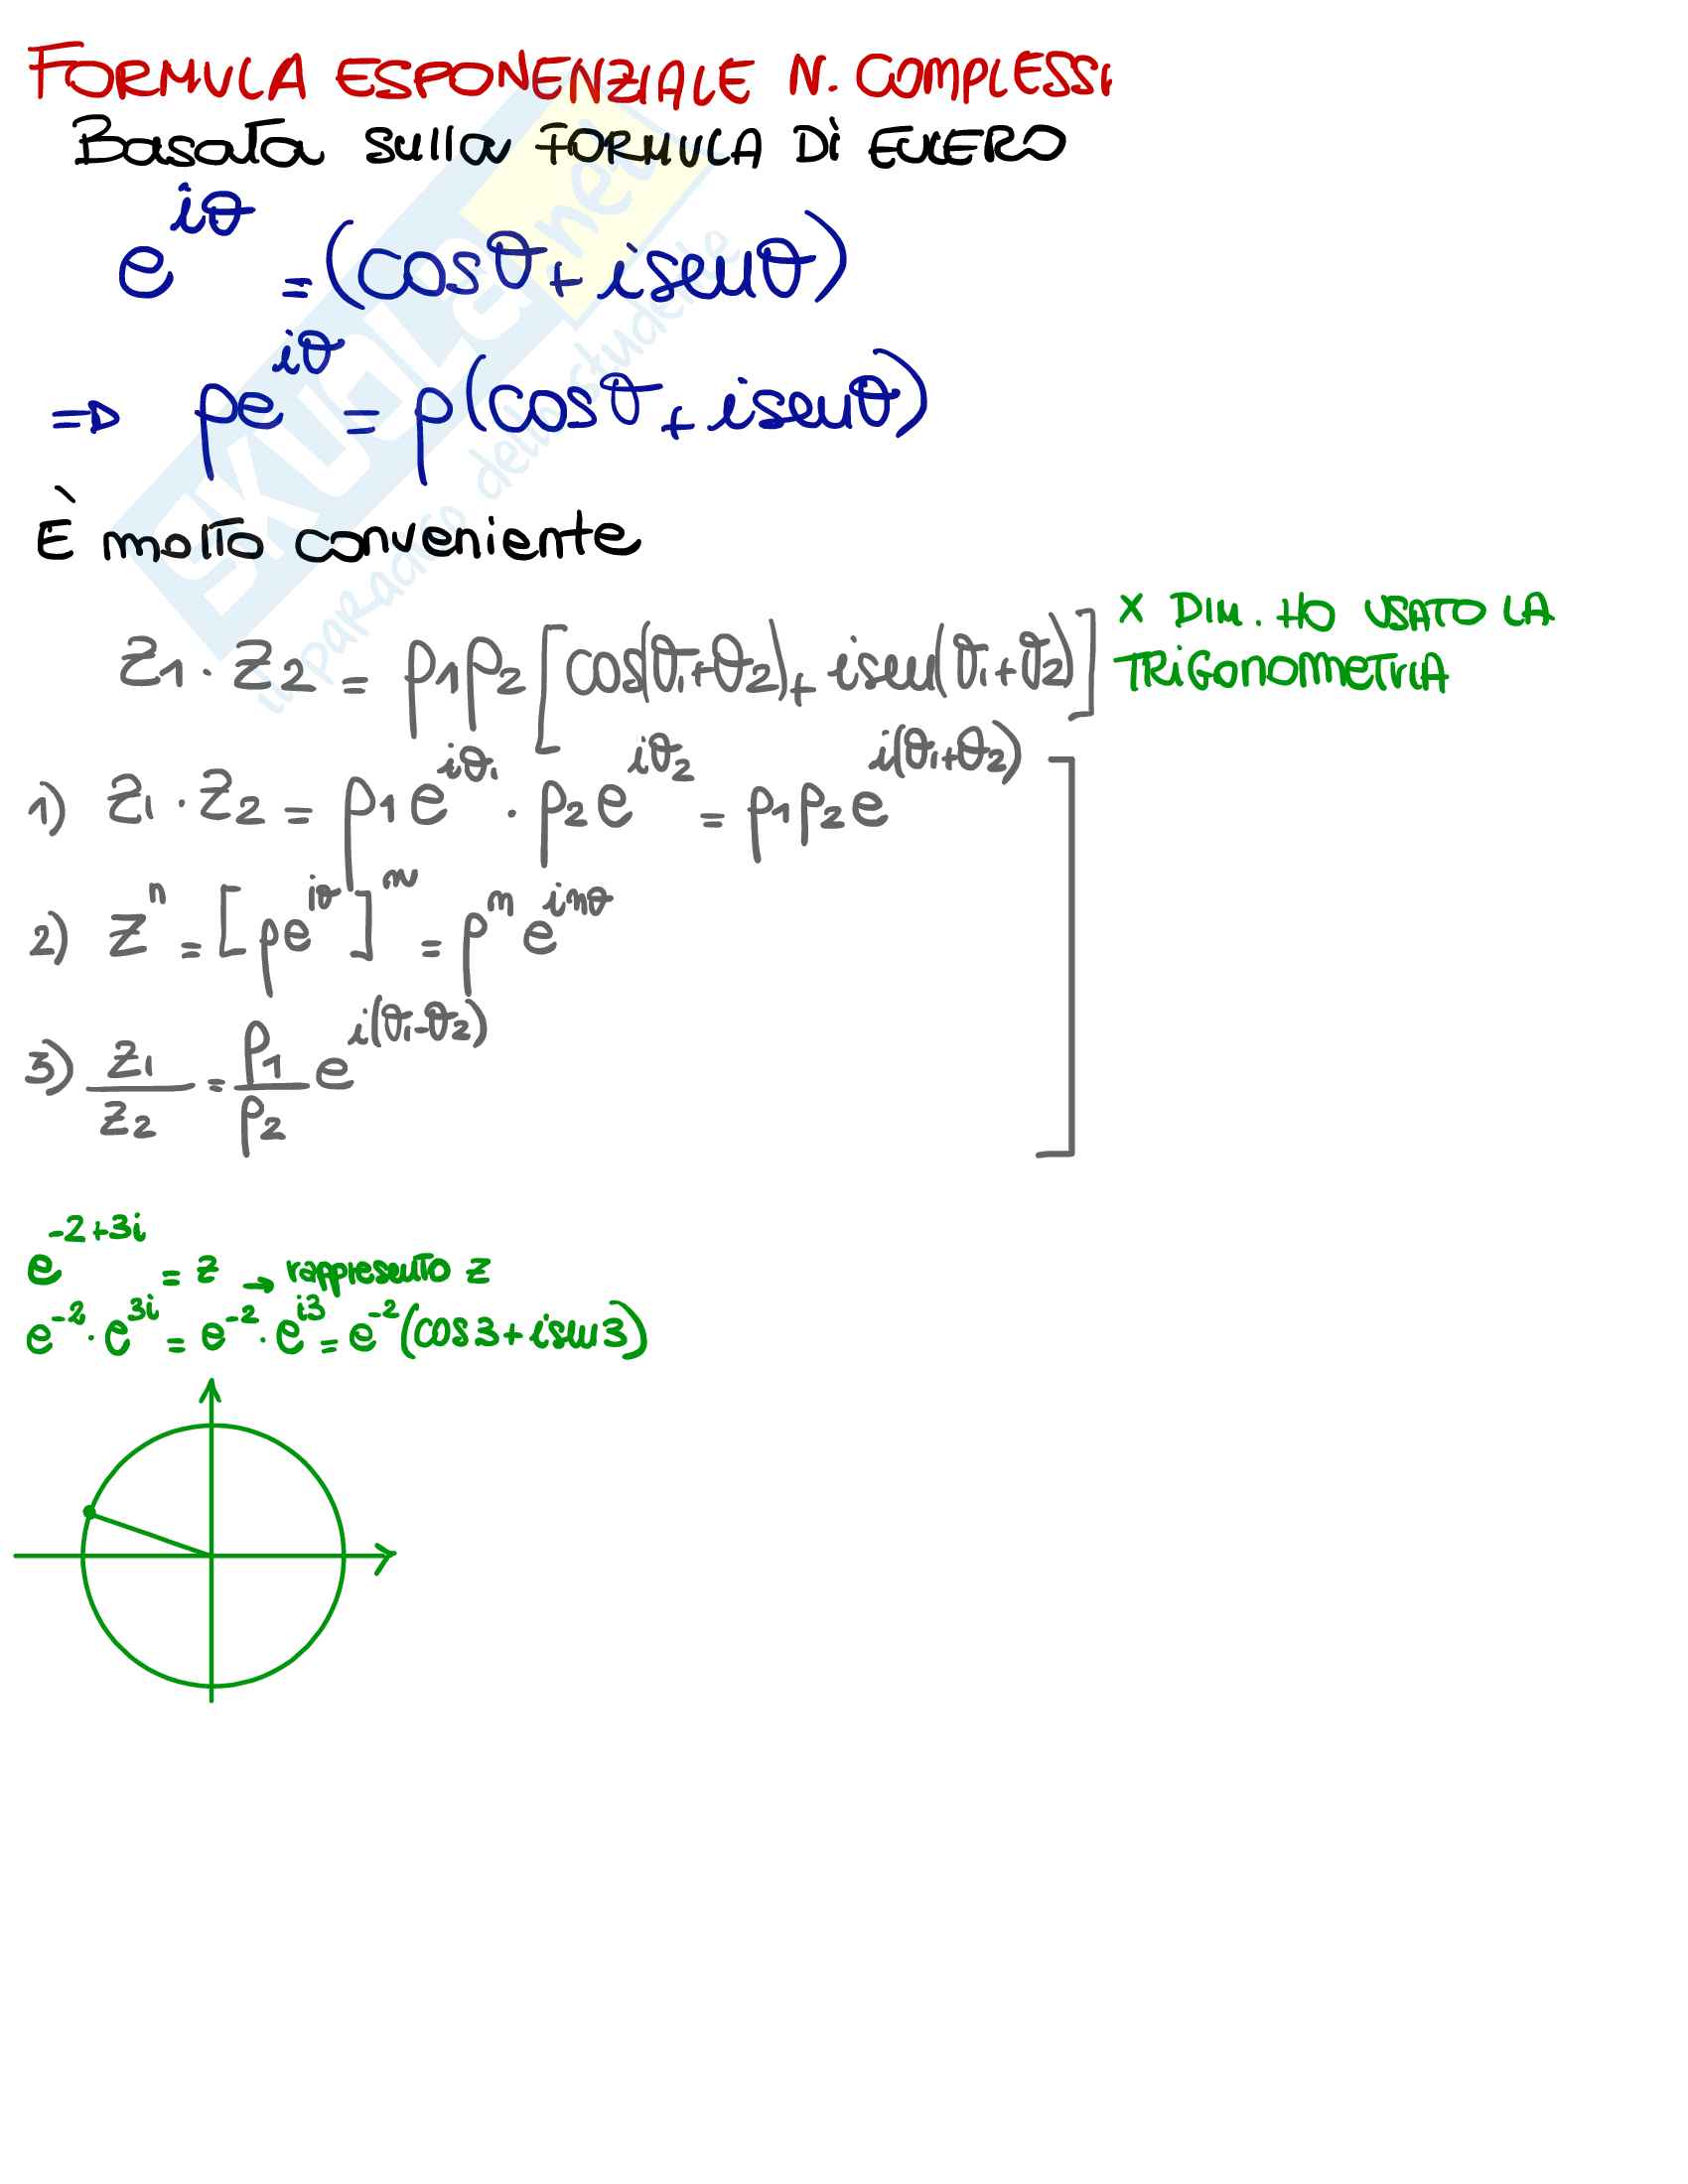 FORMULA ESPONENZIALE N. COMPLESSI
Basata sulla FORMULA Di EULERO
e^{iθ} = (cosθ + isenθ)
⇒ ρe^{iθ} = ρ(cosθ + isenθ)
È molto conveniente
z₁ · z₂ = ρ₁ρ₂ [cos(θ₁+θ₂) + isen(θ₁+θ₂)]
x DIM. HO USATO LA
TRiGONOMETRIA
1) z₁ · z₂ = ρ₁e^{iθ₁} · ρ₂e^{iθ₂} = ρ₁ρ₂e^{i(θ₁+θ₂)}
2) z^n = [ρe^{iθ}]^n = ρ^n e^{inθ}
3) z₁/z₂ = ρ₁/ρ₂ e^{i(θ₁-θ₂)}
e^{-2+3i} = z → rappresento z
e^{-2} · e^{3i} = e^{-2} · e^{i3} = e^{-2}(cos3 + isen3)
SKUOLA.net
il paradiso dello studente